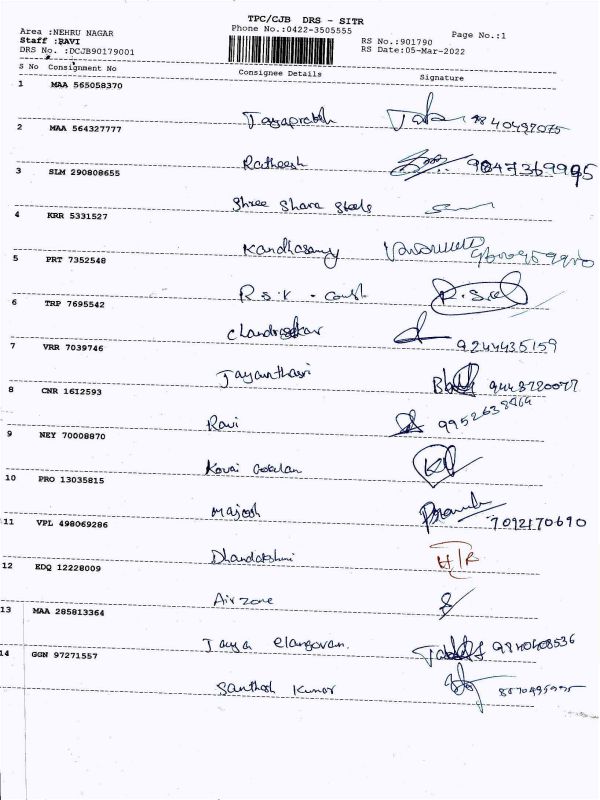 TPC/CJB DRS - SITR
Area :NEHRU NAGAR Phone No.:0422-3505555 Page No.:1
Staff :RAVI RS No.:901790
DRS No. :DCJB90179001 RS Date:05-Mar-2022
S No Consignment No Consignee Details Signature
1 MAA 565058370
Jayaprakash 9840497075
2 MAA 564327777
Ratheesh 9847369995
3 SLM 290808655
Shree Shara Steels
4 KRR 5331527
Kandhasamy
5 PRT 7352548
R.S.K - const
6 TRP 7695542
Chandrasekar 9244435159
7 VRR 7039746
Jayanthasri 9448720077
8 CNR 1612593
Ravi 9952638464
9 NEY 70008870
Kovai
10 PRO 13035815
Majosh 7092170690
11 VPL 498069286
Dhandakshmi H/R
12 EDQ 12228009
Airzone
13 MAA 285813364
Jaya elangovan. 9840408536
14 GGN 97271557
Santhosh Kumar